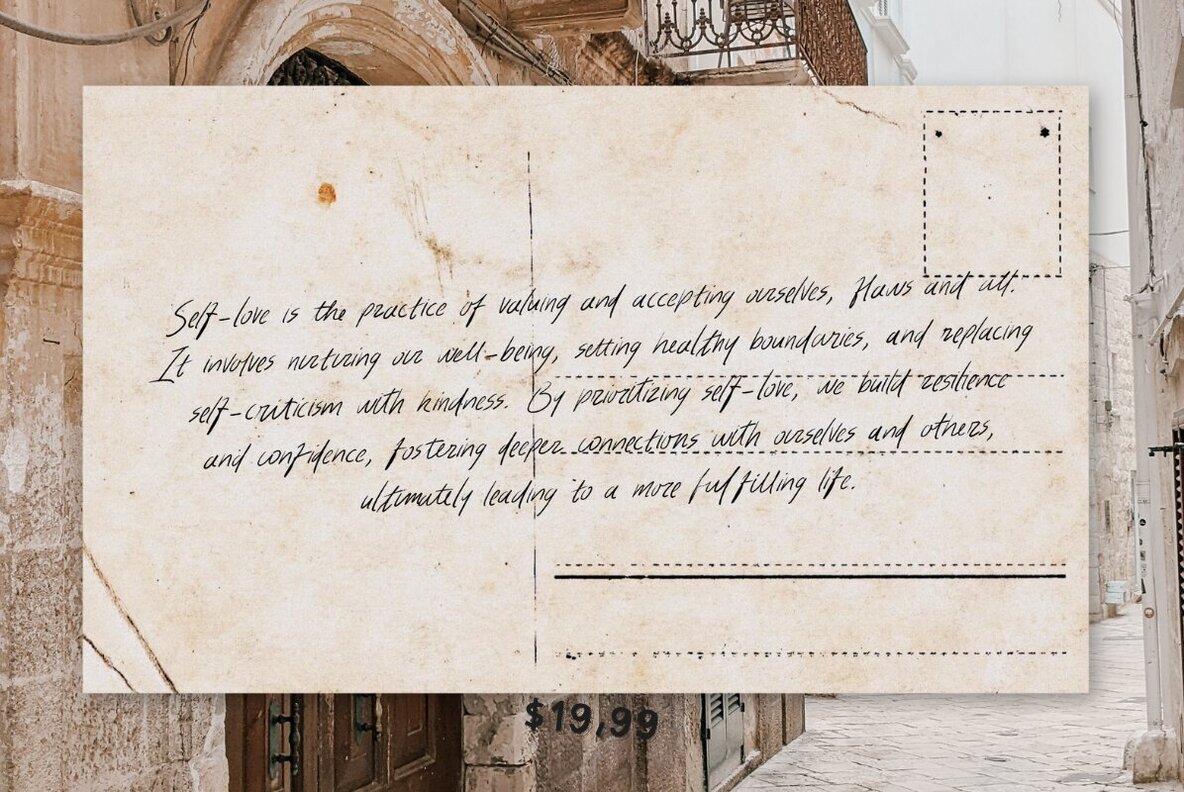 Self-love is the practice of valuing and accepting ourselves, flaws and all.
It involves nurturing our well-being, setting healthy boundaries, and replacing
self-criticism with kindness. By prioritizing self-love, we build resilience
and confidence, fostering deeper connections with ourselves and others,
ultimately leading to a more fulfilling life.
$19,99